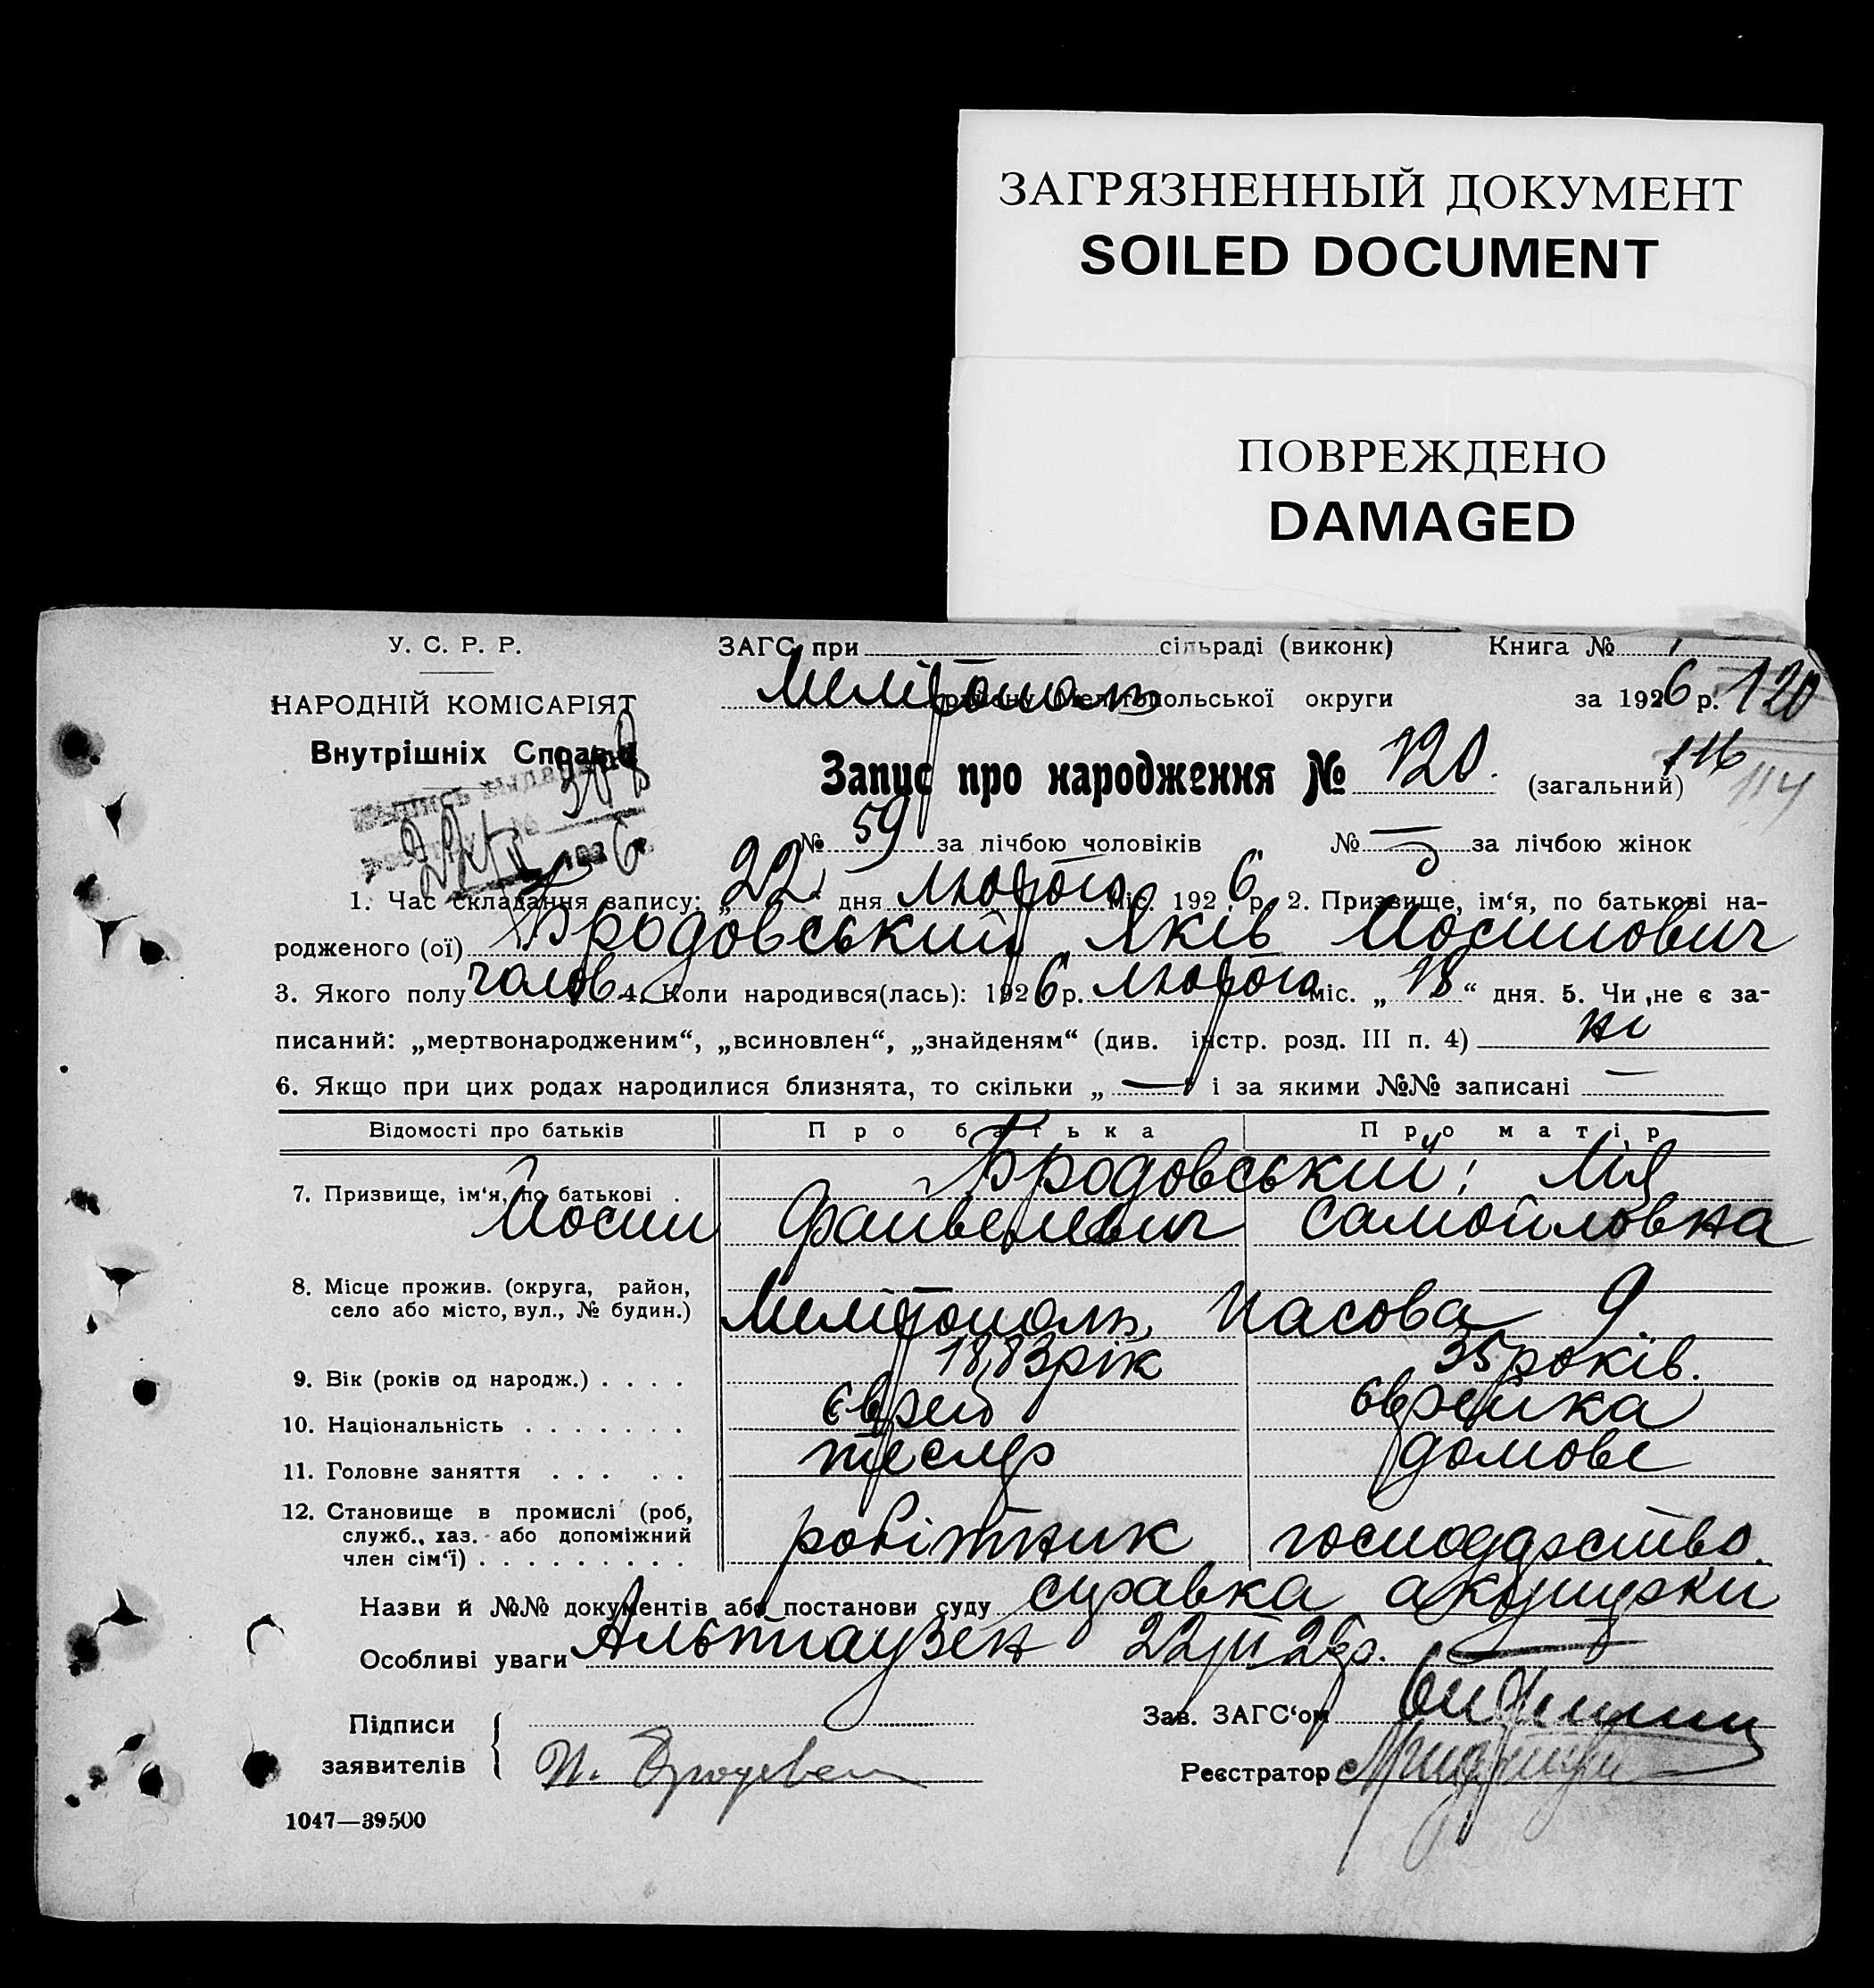 ЗАГРЯЗНЕННЫЙ ДОКУМЕНТ
SOILED DOCUMENT
ПОВРЕЖДЕНО
DAMAGED
У. С. Р. Р.
ЗАГС при сільраді (виконк) Книга № 1
НАРОДНІЙ КОМІСАРІЯТ
Мелітополь району Мелітопольської округи за 1926 р. 120
Внутрішніх Справ
Запис про народження № 120. (загальний) 116
114
№ 59 за лічбою чоловіків № — за лічбою жінок
1. Час складання запису: „22" дня лютого міс. 1926 р. 2. Призвище, ім‘я, по батькові на-
родженого (ої) Бродовський Яків Йосипович
3. Якого полу чолов. 4. Коли народився(лась): 1926 р. лютого міс. „18“ дня. 5. Чи не є за-
писаний: „мертвонародженим“, „всиновлен“, „знайденям“ (див. інстр. розд. III п. 4) ні
6. Якщо при цих родах народилися близнята, то скільки „—“ і за якими №№ записані —
Відомості про батьків Про батька Про матір
7. Призвище, ім‘я, по батькові . Бродовський: Лія
Йосип Файвелевич Самойловна
8. Місце прожив. (округа, район,
село або місто, вул., № будин.) Мелітополь, 9.
9. Вік (років од народж.) . . . . 1883 рік 35 років.
10. Національність . . . . . . . єврей єврейка
11. Головне заняття . . . . . тесляр домове
12. Становище в промислі (роб,
служб., хаз. або допоміжний
член сім‘ї) . . . . . . . . . робітник господарство.
Назви й №№ документів або постанови суду справка акушерки
Особливі уваги Альтгаузен 22/II 26 р.
Підписи
заявителів
Зав. ЗАГС‘ом
Реєстратор
1047—39500